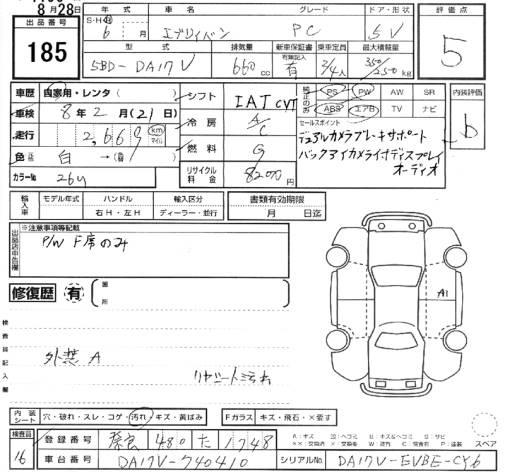 8月28日
出品番号
185
年式
車名
グレード
ドア・形状
評価点
S・H
6 月
エブリイバン
PC
5V
5
型式
排気量
新車保証書
乗車定員
最大積載量
有無記入
5BD-DA17V
660 cc
有
2/4人
350/250 kg
車歴
自家用・レンタ
シフト
IAT CVT
PS
PW
AW
SR
内装評価
車検
8年2月(21日)
冷房
A/C
ABS
エアB
TV
ナビ
b
走行
2,669
km
マイル
燃料
G
セールスポイント
デュアルカメラブレーキサポート
バックアイカメラインナディスプレイ
オーディオ
色
白
カラーNo
26U
リサイクル料金
8200円
輸入車
モデル年式
ハンドル
輸入区分
書類有効期限
右H・左H
ディーラー・並行
月 日迄
出品店申告欄
※注意事項等記載
P/W F席のみ
修復歴
有
箇所
A1
検査員記入欄
外装 A
リヤシート汚れ
内装シート
穴・破れ・スレ・コゲ・汚れ・キズ・黄ばみ
Fガラス
キズ・飛石・×要す
スペア
検査員
16
登録番号
奈良 480 た 1748
車台番号
DA17V-740410
シリアルNo
DA17V-EVBE-CY6